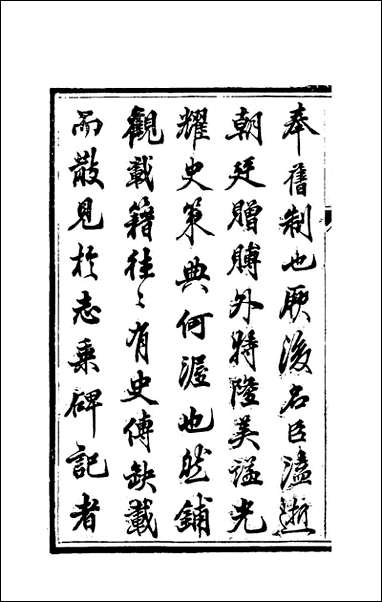 奉舊制也厥後名臣溘逝
朝廷贈賻外特隆美諡光
耀史策典何渥也然鋪
觀載籍往〻有史傳缺載
而散見於志乘碑記者